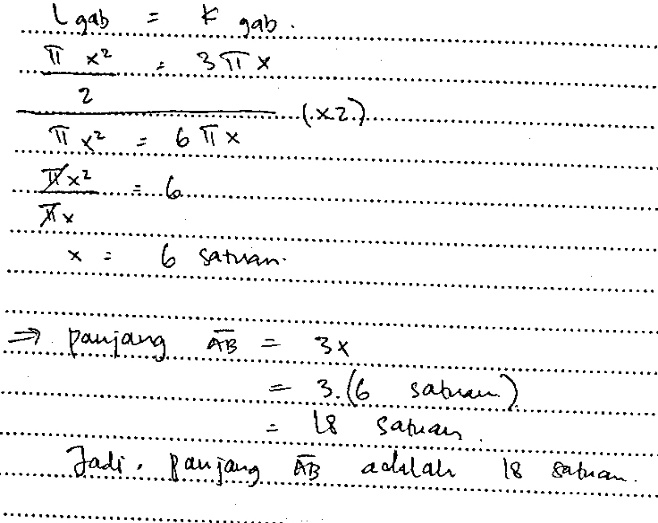 L gab = K gab.
π x² / 2 = 3 π x
(×2)
π x² = 6 π x
π x² / π x = 6
x = 6 satuan.
⇒ panjang A̅B̅ = 3x
= 3.(6 satuan)
= 18 satuan.
Jadi, panjang A̅B̅ adalah 18 satuan.